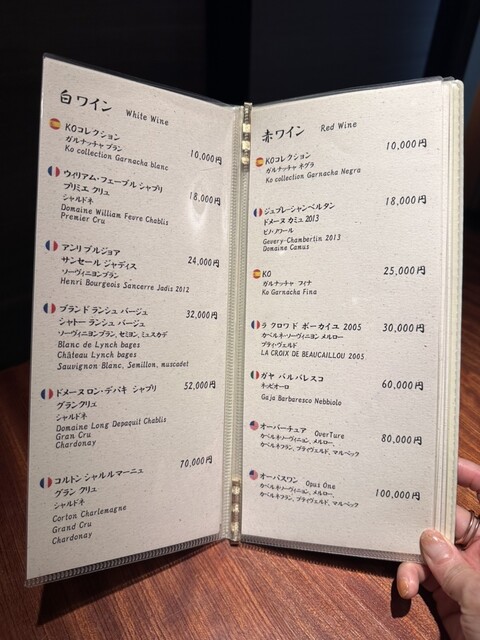 白ワイン White Wine
KOコレクション
ガルナッチャ ブラン
Ko collection Garnacha blanc
10,000円
ウィリアム・フェーブル シャブリ
プリミエ クリュ
シャルドネ
Domaine William Fevre Chablis
Premier Cru
18,000円
アンリ ブルジョア
サンセール ジャディス
ソーヴィニヨンブラン
Henri Bourgeois Sancerre Jadis 2012
24,000円
ブランド ランシュ バージュ
シャトー ランシュ バージュ
ソーヴィニヨンブラン, セミヨン, ミュスカデ
Blanc de Lynch bages
Château Lynch bages
Sauvignon Blanc, Semillon, muscadet
32,000円
ドメーヌ ロン・デパキ シャブリ
グランクリュ
シャルドネ
Domaine Long Depaquit Chablis
Gran Cru
Chardonay
52,000円
コルトン シャルルマーニュ
グラン クリュ
シャルドネ
Corton Charlemagne
Grand Cru
Chardonay
70,000円
赤ワイン Red Wine
KOコレクション
ガルナッチャ ネグラ
Ko collection Garnacha Negra
10,000円
ジュブレーシャンベルタン
ドメーヌ カミュ 2013
ピノ・ノワール
Gevery-Chamberlin 2013
Domaine Camus
18,000円
KO
ガルナッチャ フィナ
Ko Garnacha Fina
25,000円
ラ クロワ ド ボーカイユ 2005
カベルネソーヴィニヨン メルロー
プティ・ヴェルド
LA CROIX DE BEAUCAILLOU 2005
30,000円
ガヤ バルバレスコ
ネッビオーロ
Gaja Barbaresco Nebbiolo
60,000円
オーバーチュア OverTure
カベルネソーヴィニヨン, メルロー,
カベルネフラン, プティヴェルド, マルベック
80,000円
オーパスワン Opus One
カベルネソーヴィニヨン, メルロー,
カベルネフラン, プティヴェルド, マルベック
100,000円